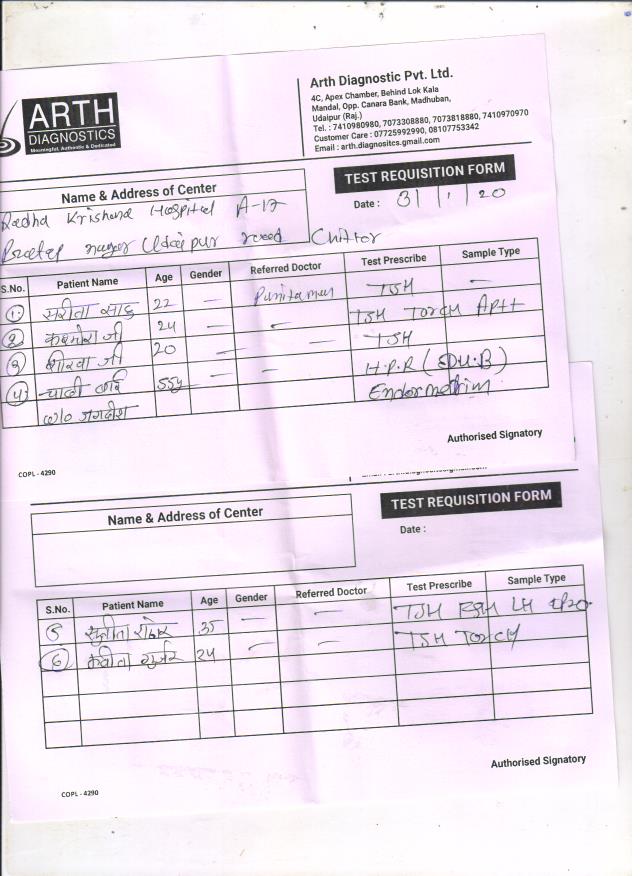 ARTH
DIAGNOSTICS
Meaningful, Authentic & Dedicated
Arth Diagnostic Pvt. Ltd.
4C, Apex Chamber, Behind Lok Kala
Mandal, Opp. Canara Bank, Madhuban,
Udaipur (Raj.)
Tel. : 7410980980, 7073308880, 7073818880, 7410970970
Customer Care : 07725992990, 08107753342
Email : arth.diagnositcs.gmail.com
TEST REQUISITION FORM
Date : 31 | 1 | 20
Name & Address of Center
Radha Krishna Hospital A-17
nagar Udaipur road Chittor
S.No. Patient Name Age Gender Referred Doctor Test Prescribe Sample Type
1. सरीता साहु 22 — TSH —
2 जी 24 — TSH TORCH APtt
3 जी 20 — — TSH
4. बाई 55y — — H.P.R (
w/o जगदीश Endormetrim
Authorised Signatory
COPL - 4290
TEST REQUISITION FORM
Name & Address of Center
Date :
S.No. Patient Name Age Gender Referred Doctor Test Prescribe Sample Type
5 सुनीता 35 — — TSH FSH LH
6 कवीता गुर्जर 24 — — TSH TORCH
Authorised Signatory
COPL - 4290